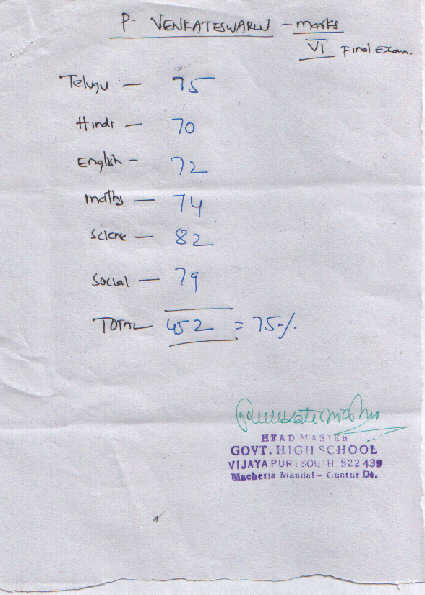 P. VENKATESWARLU - marks
VI Final Exam.
Telugu - 75
Hindi - 70
English - 72
maths - 74
Science - 82
Social - 79
TOTAL 452 = 75%
HEAD MASTER
GOVT. HIGH SCHOOL
VIJAYAPURI SOUTH 522 439
Macherla Mandal - Guntur Dt.